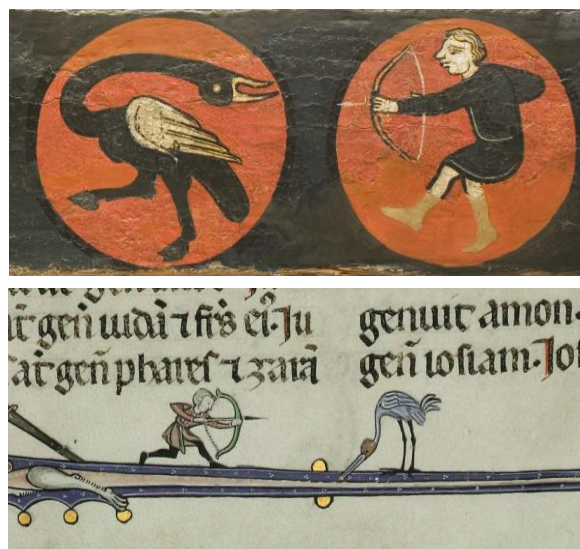 geñ iudã ⁊ fr̃s eiꝰ. Ju
geñ phares ⁊ zarã
genuit amon.
geñ iosiam. Jos